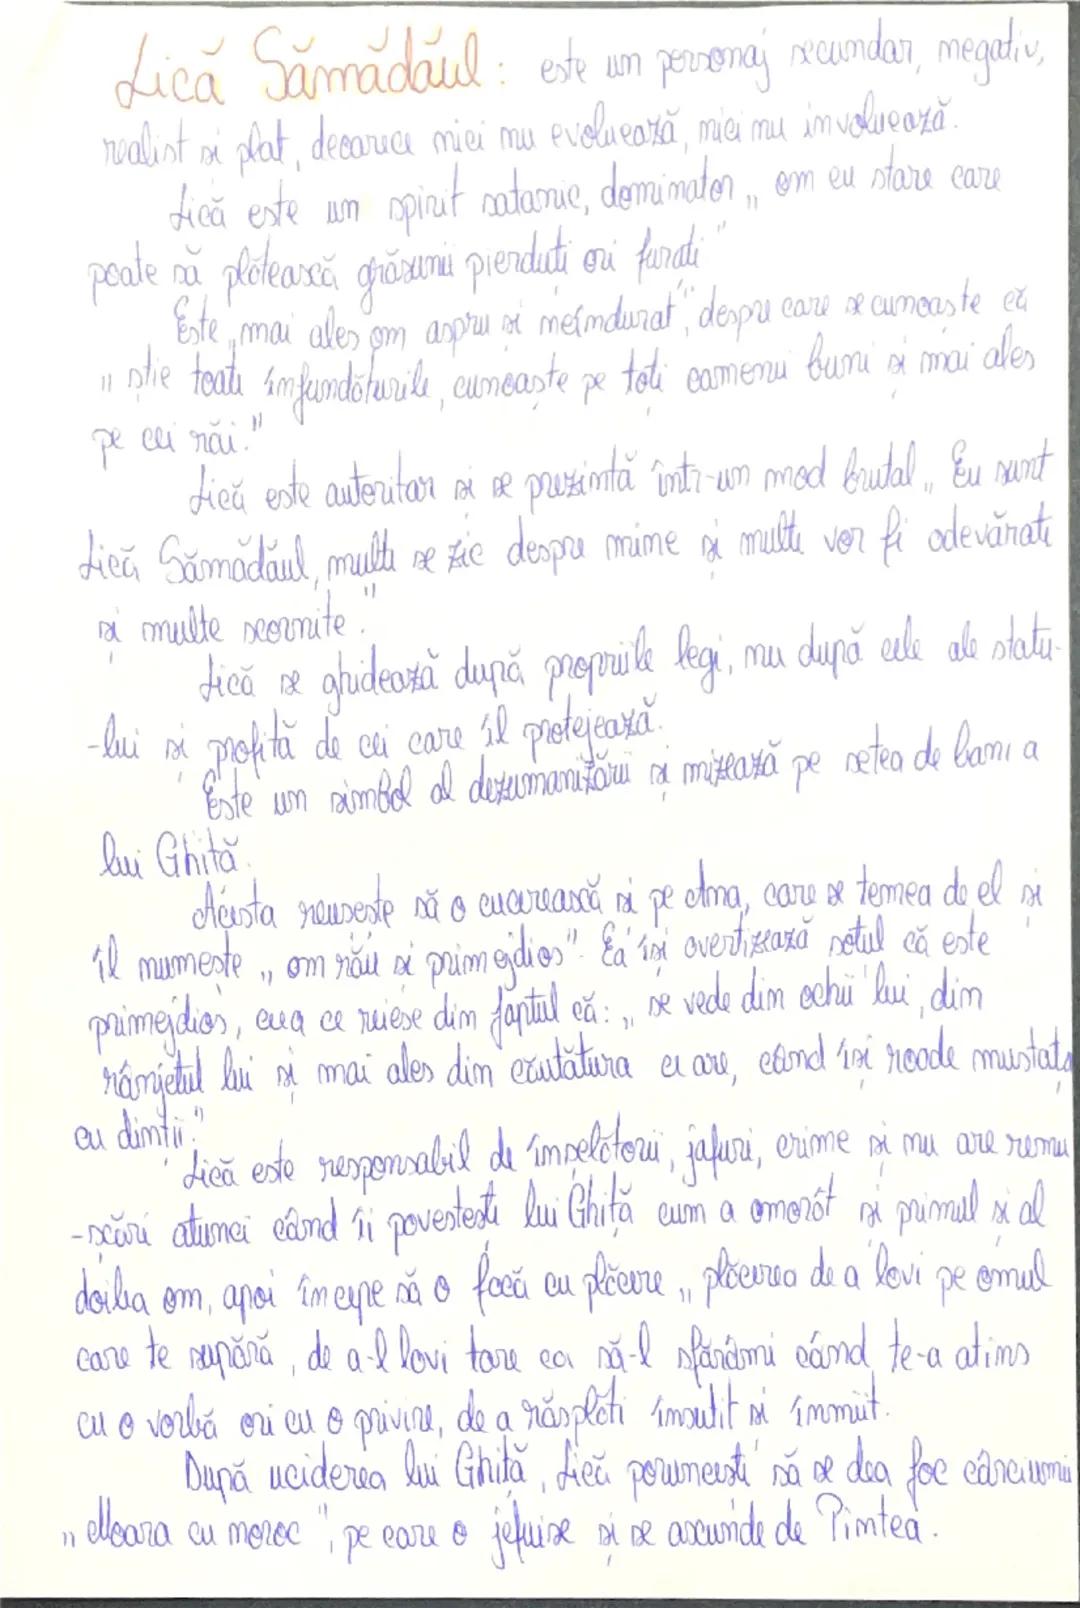 Lică Sămădăul: este un personaj secundar, negativ,
realist și plat, deoarece nici nu evoluează, nici nu involuează.
Lică este un spirit satanic, dominator „om cu stare care
poate să plătească grăsunii pierduți ori furați"
Este „mai ales om aspru și neîndurat", despre care se cunoaște că
„știe toate înfundăturile, cunoaște pe toți oamenii buni și mai ales
pe cei răi."
Lică este autoritar și se prezintă într-un mod brutal „Eu sunt
Lică Sămădăul, multe se zic despre mine și multe vor fi adevărate
și multe scornite."
Lică se ghidează după propriile legi, nu după cele ale statu-
-lui și profită de cei care îl protejează.
Este un simbol al dezumanizării și mizează pe setea de bani a
lui Ghiță.
Acesta reușește să o cucerească și pe Ana, care se temea de el și
îl numește „om rău și primejdios". Ea își avertizează soțul că este
primejdios, ceea ce reiese din faptul că: „se vede din ochii lui, din
rânjetul lui și mai ales din căutătura ce are, când își roade mustața
cu dinții."
Lică este responsabil de înșelătorii, jafuri, crime și nu are remu
-șcări atunci când îi povestește lui Ghiță cum a omorât și primul și al
doilea om, apoi începe să o facă cu plăcere „plăcerea de a lovi pe omul
care te supără, de a-l lovi tare ca să-l sfărâmi când te-a atins
cu o vorbă ori cu o privire, de a răsplăti însutit și înmiit.
După uciderea lui Ghiță, Lică poruncește să se dea foc cârciumii
„Moara cu noroc", pe care o jefuise și se ascunde de Pintea.